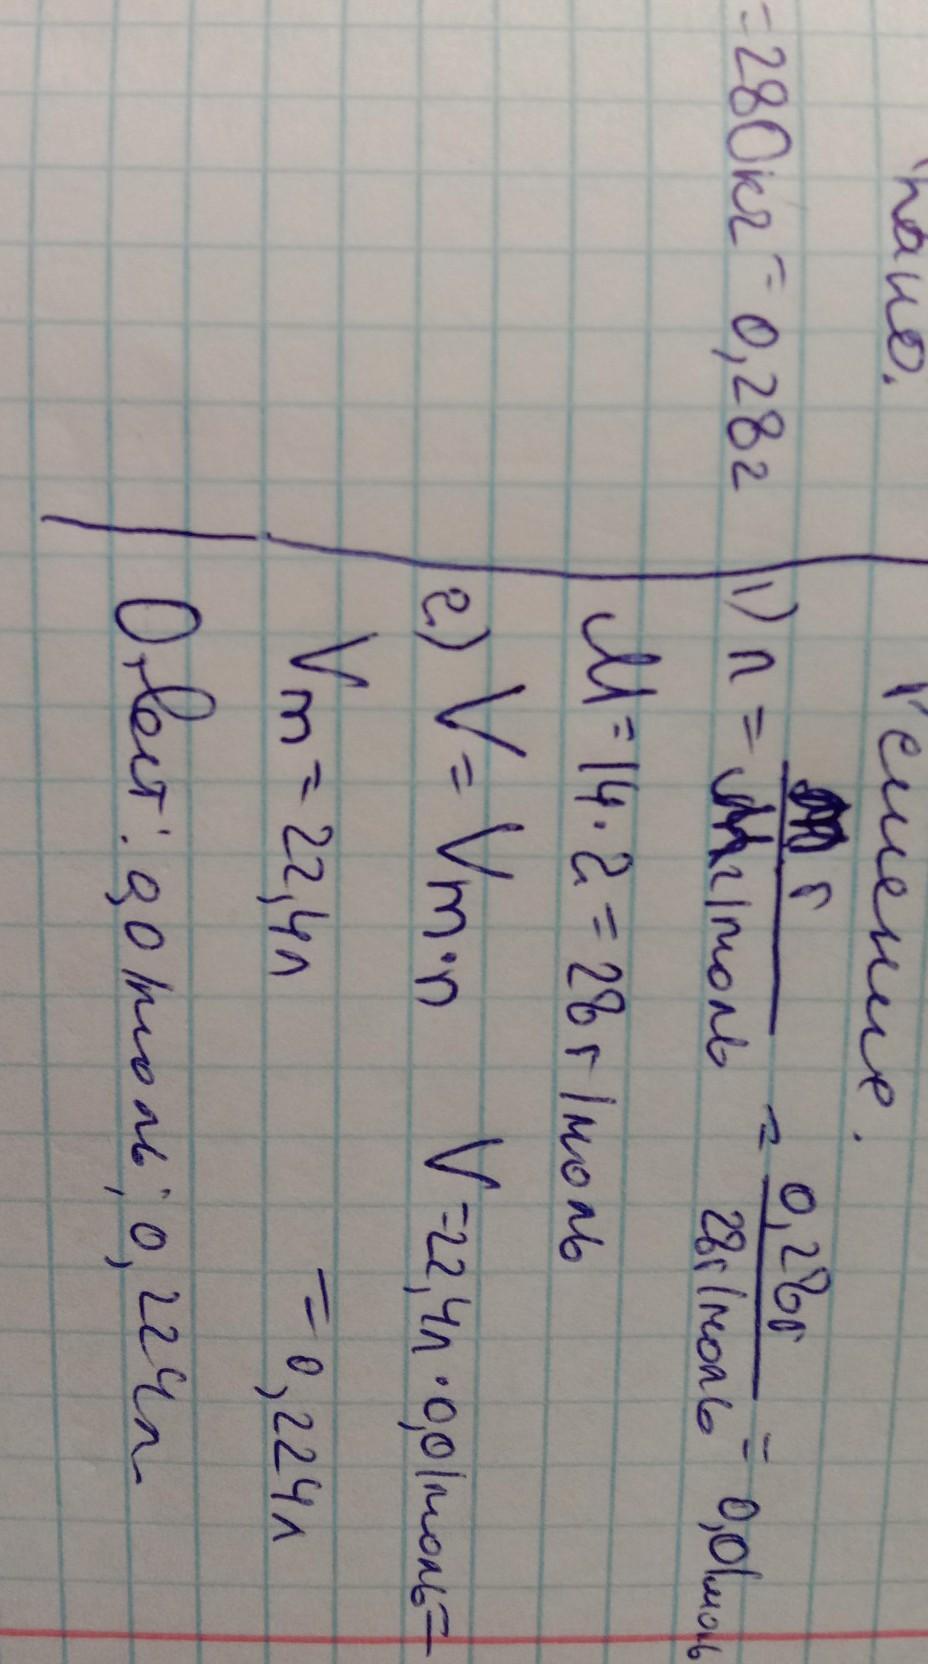 Решение.
= 280кг = 0,28г
1) n = m г / M г/моль = 0,28г / 28г/моль = 0,01моль
M = 14 · 2 = 28 г/моль
2) V = Vm · n V = 22,4л · 0,01моль =
Vm = 22,4л = 0,224л
Ответ: 0,01моль; 0,224л